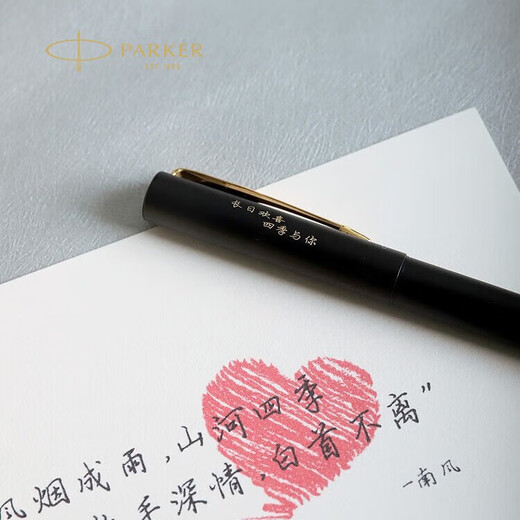 PARKER
长日欢喜
四季与你
风烟成雨，山河四季
手深情，白首不离”
一南风